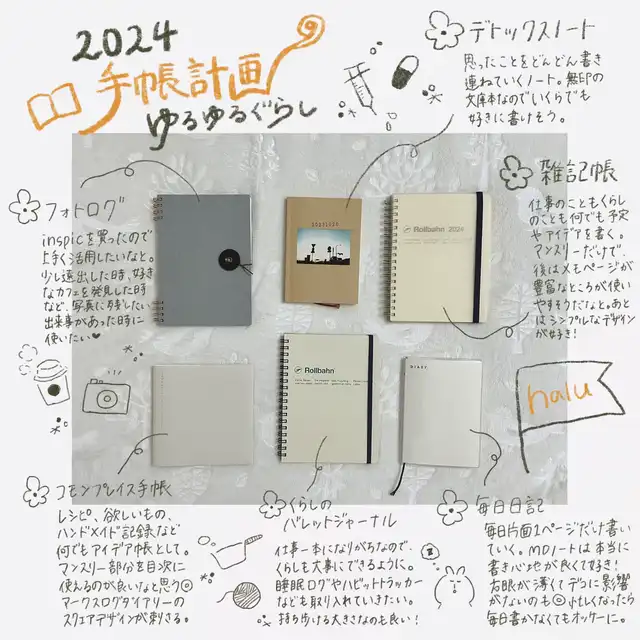 2024
手帳計画
ゆるゆるぐらし
デトックスノート
思ったことをどんどん書き
連ねていくノート。無印の
文庫本なのでいくらでも
好きに書けそう。
雑記帳
仕事のこともくらし
のことも何でも予定
やアイデアを書く。
マンスリーだけで、
後はメモページが
豊富なところが使い
やすそうだなと。あと
はシンプルなデザイン
が好き!
フォトログ
inspicを買ったので
上手く活用したいなと。
少し遠出した時、好き
なカフェを発見した時
など、写真に残したい
出来事があった時に
使いたい♥
Rollbahn 2024
Rollbahn
DIARY
halu
コモンプレイス手帳
レシピ、欲しいもの、
ハンドメイド記録など
何でもアイデア帳として。
マンスリー部分を目次に
使えるのが良いなと思う◎
マークスログダイアリーの
スクエアデザインが刺さる。
くらしの
バレットジャーナル
仕事一本になりがちなので、
くらしも大事にできるように。
睡眠ログやハビットトラッカー
なども取り入れていきたい。
持ち歩ける大きさなのも良い!
毎日日記
毎日片面1ページだけ書い
ていく。MDノートは本当に
書き心地が良くて好き!
方眼が薄くてデコに影響
がないのも◎
毎日書かなくてもオッケーに。